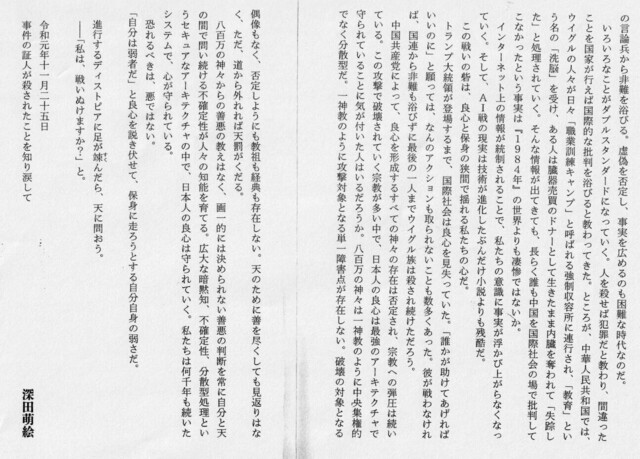 の言論兵から非難を浴びる。虚偽を否定し、事実を広めるのも困難な時代なのだ。
いろいろなことがダブルスタンダードになっていく。人を殺せば犯罪だと教わり、間違った
ことを国家が行えば国際的な批判を浴びると教わってきた。ところが、中華人民共和国では、
ウイグルの人々が日々「職業訓練キャンプ」と呼ばれる強制収容所に連行され、「教育」とい
う名の「洗脳」を受け、ある人は臓器売買のドナーとして生きたまま内臓を奪われて「失踪し
た」と処理されていく。そんな情報が出てきても、長らく誰も中国を国際社会の場で批判して
こなかったという事実は『1984年』の世界よりも凄惨ではないか。
インターネット上の情報が統制されることで、私たちの意識に事実が浮かび上がらなくなっ
ていく。そして、AI戦の現実は技術が進化したぶんだけ小説よりも残酷だ。
この戦いの砦は、良心と保身の狭間で揺れる私たちの心だ。
トランプ大統領が登場するまで、国際社会は良心を見失っていた。「誰かが助けてあげれば
いいのに」と願っては、なんのアクションも取られないことも数多くあった。彼が戦わなけれ
ば、国連から非難も浴びずに最後の一人までウイグル族は殺され続けただろう。
中国共産党によって、良心を形成するすべての神々の存在は否定され、宗教への弾圧は続い
ている。この攻撃で破壊されていく宗教が多い中で、日本人の良心は最強のアーキテクチャで
守られていることに気が付いた人はいるだろうか。八百万の神々は一神教のように中央集権的
でなく分散型だ。一神教のように攻撃対象となる単一障害点が存在しない。破壊の対象となる
偶像もなく、否定しようにも教祖も経典も存在しない。天のために善を尽くしても見返りはな
く、ただ、道から外れれば天罰がくだる。
八百万の神々からの善悪の教えはなく、画一的には決められない善悪の判断を常に自分と天
の間で問い続ける不確定性が人々の知能を育てる。広大な暗黙知、不確定性、分散型処理とい
うセキュアなアーキテクチャの中で、日本人の良心は守られていく。私たちは何千年も続いた
システムで、心が守られている。
恐れるべきは、悪ではない。
「自分は弱者だ」と良心を説き伏せて、保身に走ろうとする自分自身の弱さだ。
進行するディストピアに足が竦んだら、天に問おう。
――「私は、戦いぬけますか?」と。
令和元年十一月二十五日
事件の証人が殺されたことを知り涙して
深田萌絵